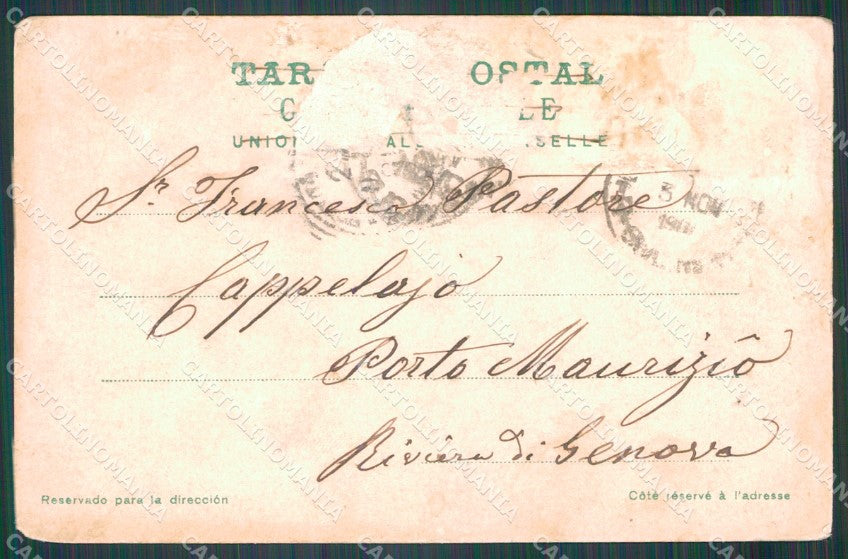 TAR OSTAL
C LE
UNION ALE SELLE
3 NOV
Sr. Francesco Pastore
Cappelajo
Porto Maurizio
Riviera di Genova
Reservado para la dirección
Côté réservé à l'adresse
CARTOLINOMANIA